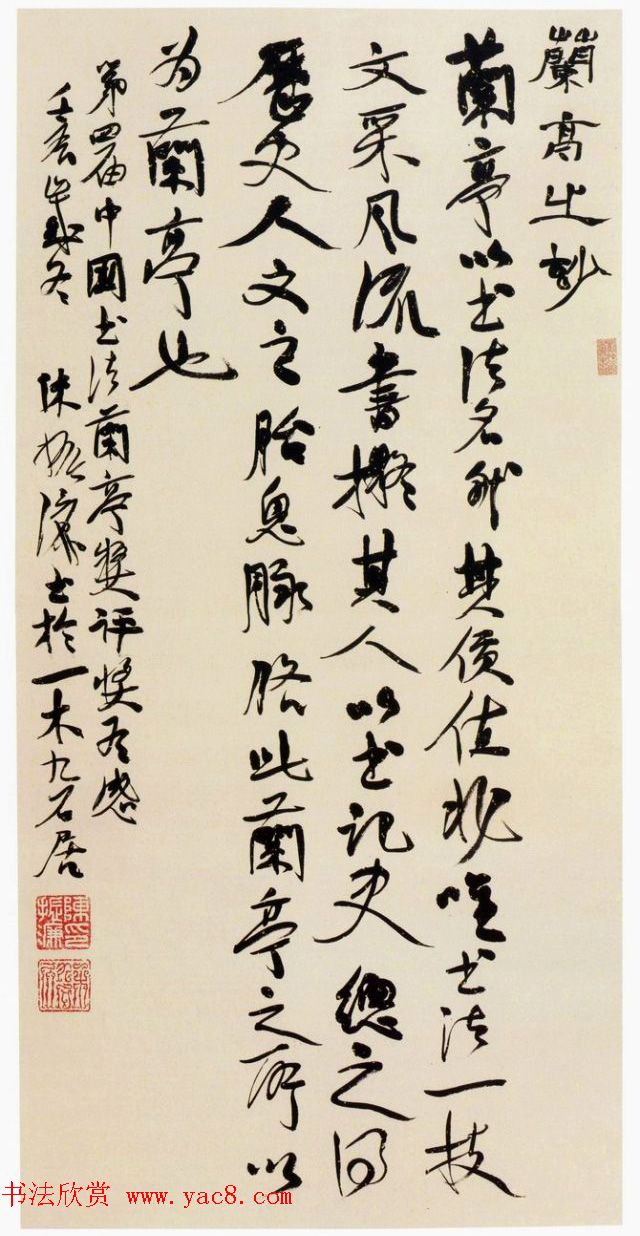 蘭高之
蘭亭以書法名然其價值非唯書法一技
文采風流書擬其人以書記史總之得
歷史人文之胎息脈胳此蘭亭之所以
為蘭亭也
第四屆中國書法蘭亭獎評獎有感
壬辰冬 陳振濂書於一木九石居
陳印振濂
书法欣赏 www.yac8.com